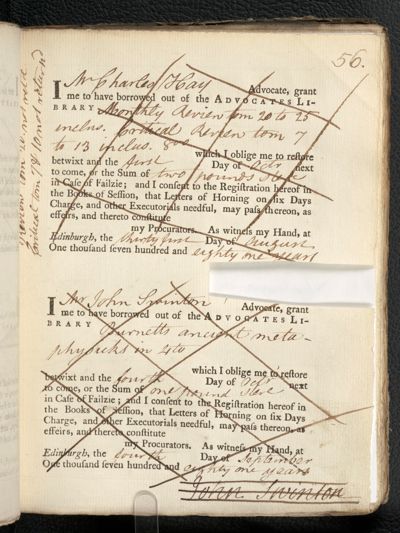 56.
I Mr Charles Hay Advocate, grant
me to have borrowed out of the ADVOCATES LI-
BRARY Monthly Review tom 20 to 25
inclus. Critical Review tom 7
to 13 inclus. 8vo
which I oblige me to restore
betwixt and the first Day of Octr. next
to come, or the Sum of two pounds Sterl
in Case of Failzie; and I consent to the Registration hereof in
the Books of Session, that Letters of Horning on six Days
Charge, and other Executorials needful, may pass thereon, as
effeirs, and thereto constitute
my Procurators. As witness my Hand, at
Edinburgh, the thirty first Day of August
One thousand seven hundred and eighty one years
I Mr John Swinton Advocate, grant
me to have borrowed out of the ADVOCATES LI-
BRARY Burnetts ancient meta-
physicks in 4to
which I oblige me to restore
betwixt and the fourth Day of Octr. next
to come, or the Sum of one pound Sterl
in Case of Failzie; and I consent to the Registration hereof in
the Books of Session, that Letters of Horning on six Days
Charge, and other Executorials needful, may pass thereon, as
effeirs, and thereto constitute
my Procurators. As witness my Hand, at
Edinburgh, the fourth Day of September
One thousand seven hundred and eighty one years
John Swinton
Review tom 20 not
Critical tom 7 & 10 not returnd